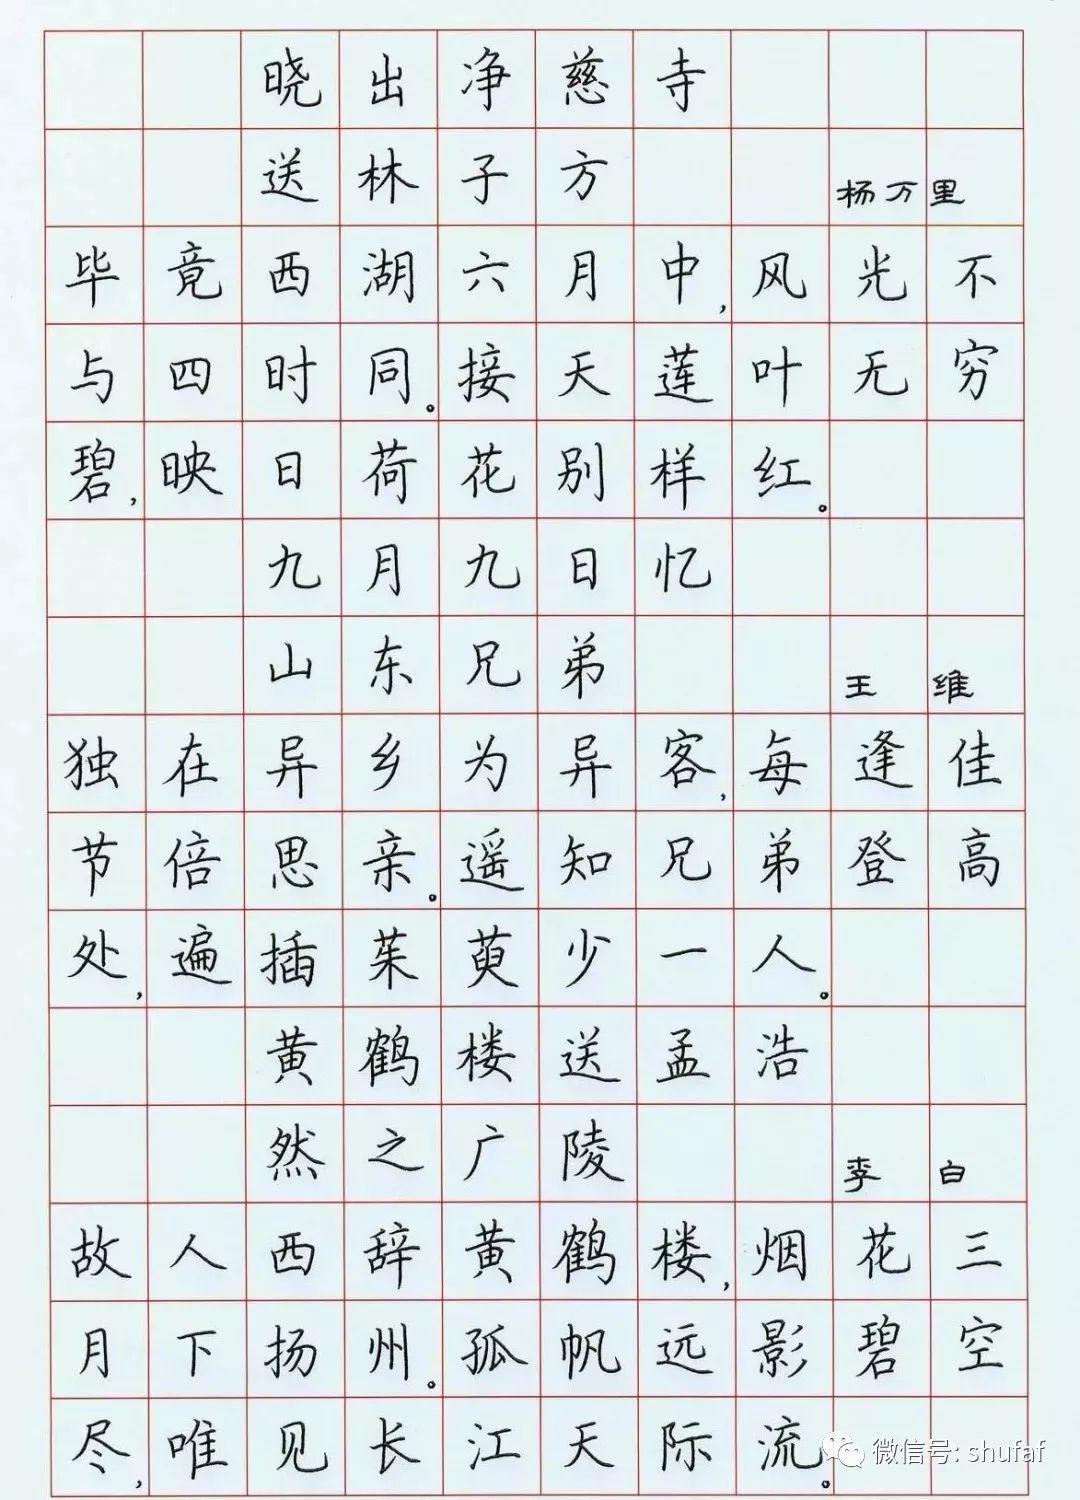 晓出净慈寺
送林子方 杨万里
毕竟西湖六月中,风光不
与四时同。接天莲叶无穷
碧,映日荷花别样红。
九月九日忆
山东兄弟 王维
独在异乡为异客,每逢佳
节倍思亲。遥知兄弟登高
处,遍插茱萸少一人。
黄鹤楼送孟浩
然之广陵 李白
故人西辞黄鹤楼,烟花三
月下扬州。孤帆远影碧空
尽,唯见长江天际流。
微信号: shufaf